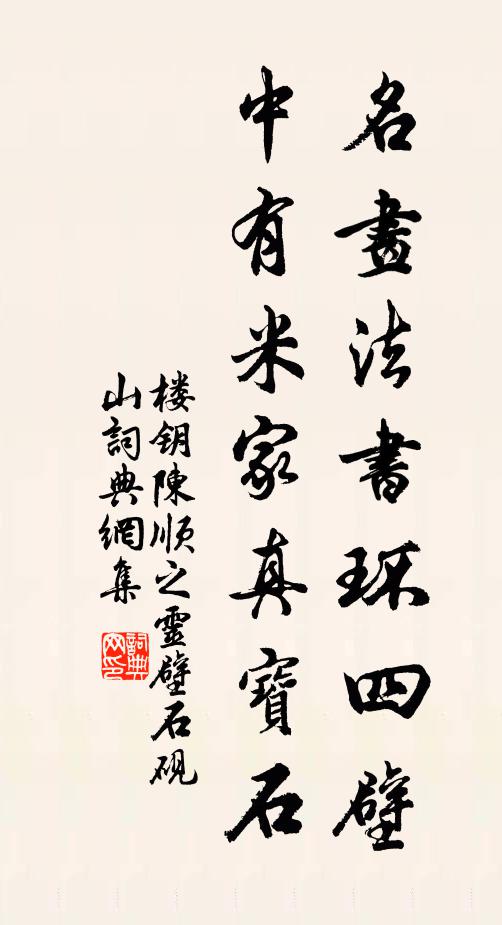 名畫法書环四壁
中有米家真寶石
楼钥陳順之靈壁石硯
山詞典網集
詞典
网印